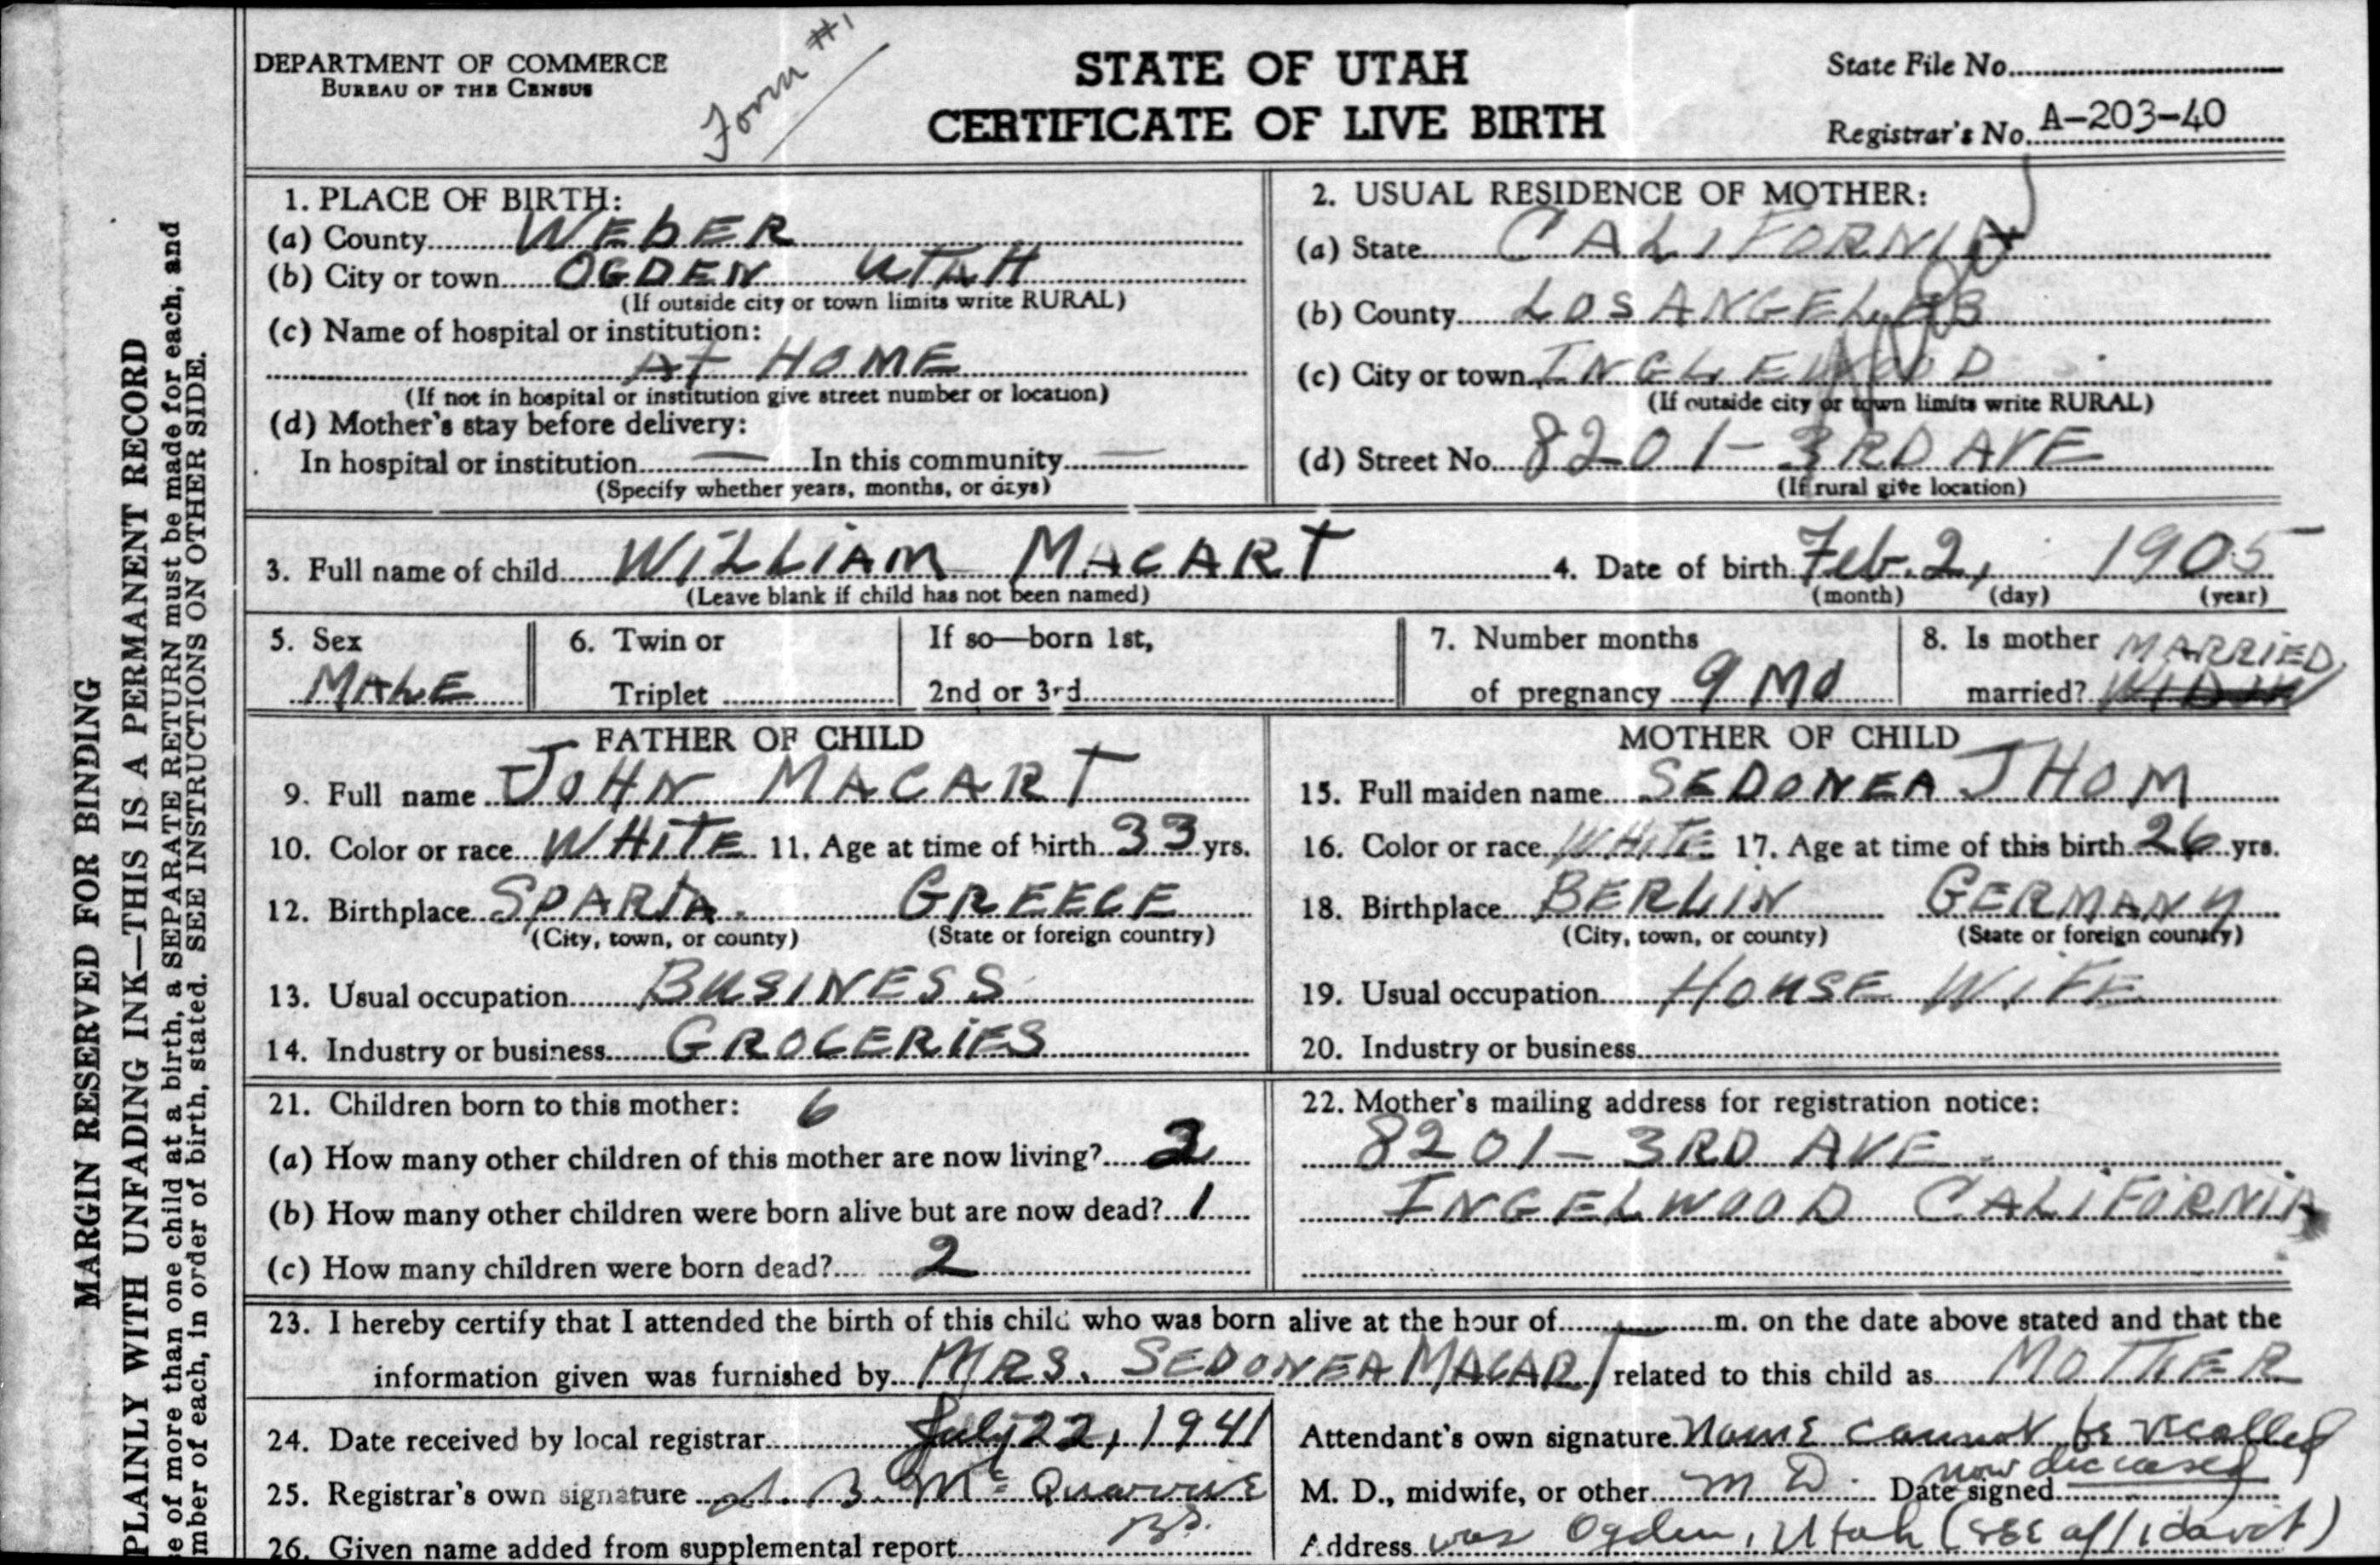 DEPARTMENT OF COMMERCE
BUREAU OF THE CENSUS
Form #1
STATE OF UTAH
CERTIFICATE OF LIVE BIRTH
State File No.
Registrar's No. A-203-40
MARGIN RESERVED FOR BINDING
PLAINLY WITH UNFADING INK—THIS IS A PERMANENT RECORD
se of more than one child at a birth, a SEPARATE RETURN must be made for each, and
mber of each, in order of birth, stated. SEE INSTRUCTIONS ON OTHER SIDE.
1. PLACE OF BIRTH:
(a) County WEBER
(b) City or town OGDEN UTAH
(If outside city or town limits write RURAL)
(c) Name of hospital or institution:
At HOME
(If not in hospital or institution give street number or location)
(d) Mother's stay before delivery:
In hospital or institution — In this community —
(Specify whether years, months, or days)
2. USUAL RESIDENCE OF MOTHER:
(a) State CALIFORNIA
(b) County LOS ANGELES
(c) City or town INGLEWOOD
(If outside city or town limits write RURAL)
(d) Street No. 8201-3RD AVE
(If rural give location)
3. Full name of child WILLIAM MACART 4. Date of birth Feb. 2, 1905
(Leave blank if child has not been named) (month) (day) (year)
5. Sex MALE
6. Twin or Triplet
If so—born 1st, 2nd or 3rd
7. Number months of pregnancy 9 MO
8. Is mother married? MARRIED
FATHER OF CHILD
9. Full name JOHN MACART
10. Color or race WHITE 11. Age at time of birth 33 yrs.
12. Birthplace SPARTA. GREECE
(City, town, or county) (State or foreign country)
13. Usual occupation BUSINESS
14. Industry or business GROCERIES
MOTHER OF CHILD
15. Full maiden name SEDONEA THOM
16. Color or race WHITE 17. Age at time of this birth 26 yrs.
18. Birthplace BERLIN GERMANY
(City, town, or county) (State or foreign country)
19. Usual occupation HOUSE WIFE
20. Industry or business
21. Children born to this mother: 6
(a) How many other children of this mother are now living?
(b) How many other children were born alive but are now dead? 1
(c) How many children were born dead? 2
22. Mother's mailing address for registration notice:
8201-3RD AVE.
INGELWOOD CALIFORNIA
23. I hereby certify that I attended the birth of this child who was born alive at the hour of m. on the date above stated and that the
information given was furnished by MRS. SEDONEA MACART related to this child as MOTHER
24. Date received by local registrar July 22, 1941
25. Registrar's own signature B. McQuarrie
26. Given name added from supplemental report
Attendant's own signature Name cannot be recalled
now deceased
M. D., midwife, or other M D. Date signed
Address was Ogden, Utah (SEE affidavit)